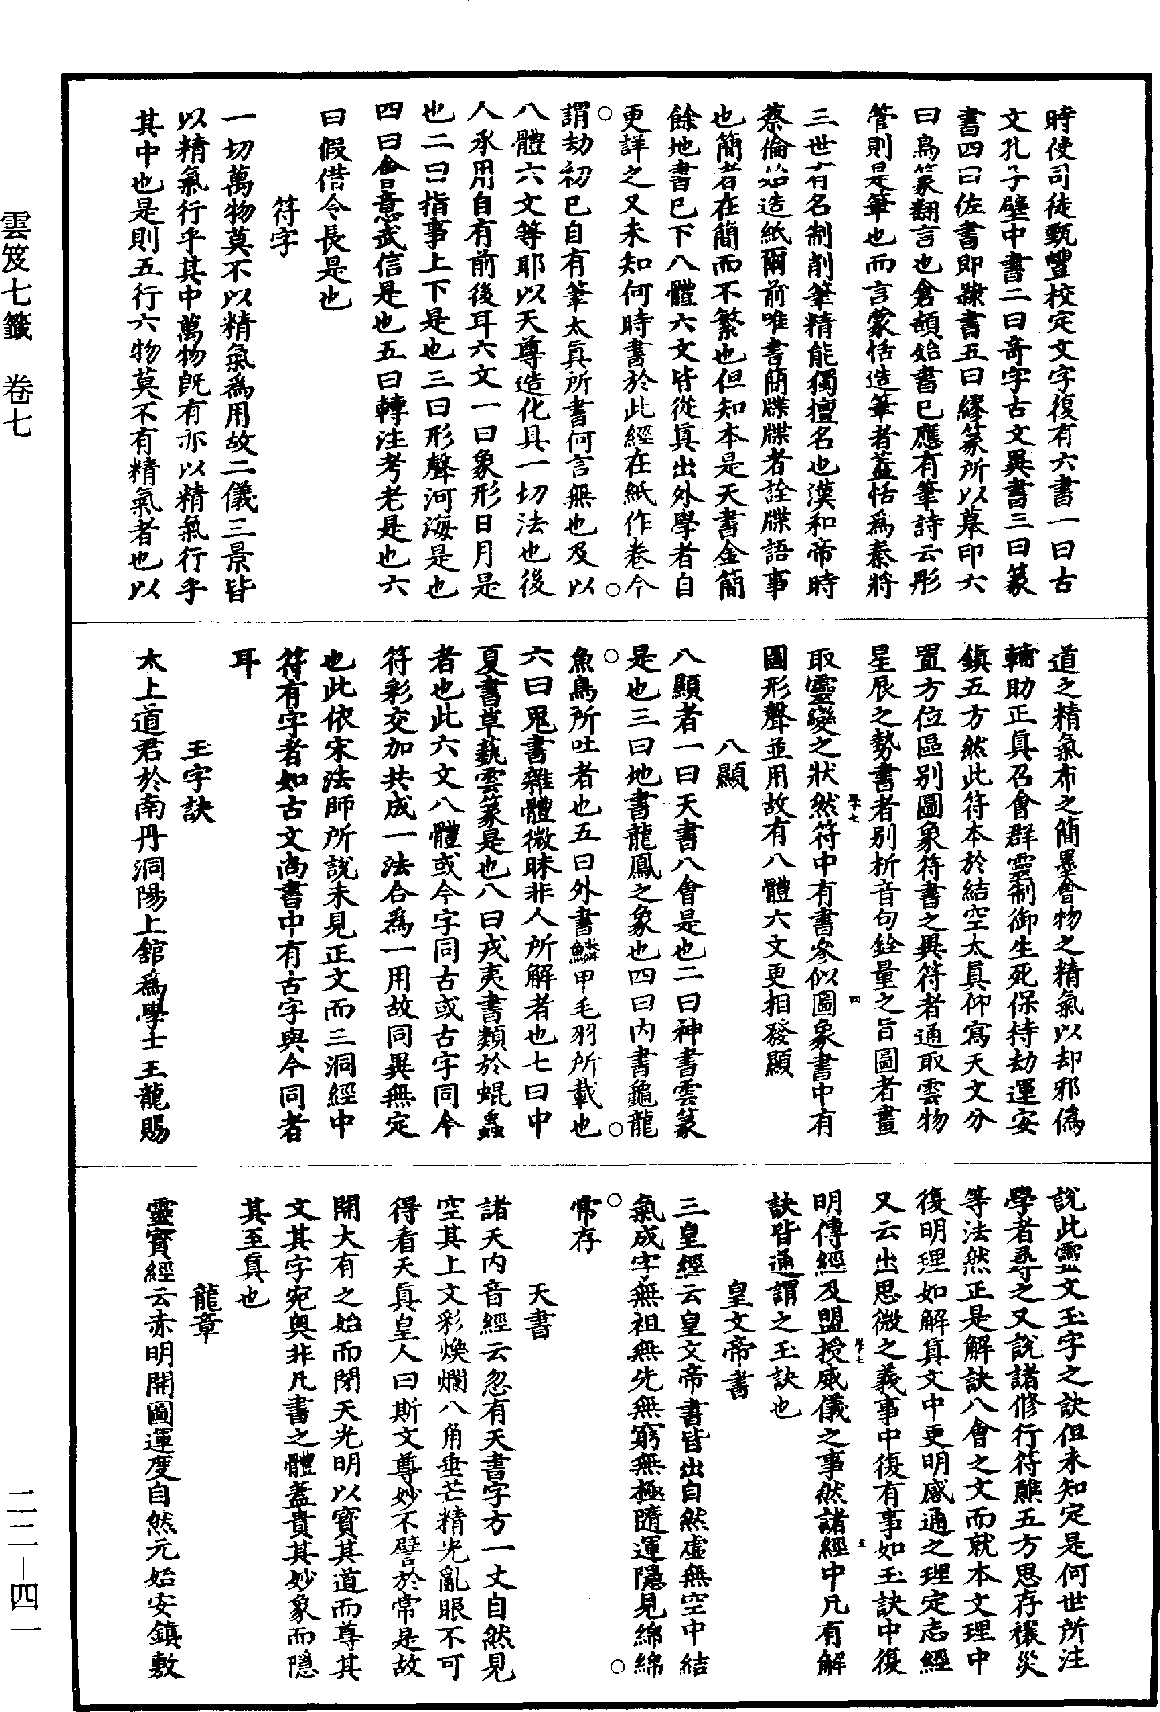 時使司徒甄豐校定文字復有六書一曰古
文孔子壁中書二曰奇字古文異書三曰篆
書四曰佐書即隸書五曰繆篆所以摹印六
曰鳥篆翻言也倉頡始書已應有筆詩云彤
管則是筆也而言蒙恬造筆者蓋恬爲秦將
三世有名制削筆精能獨擅名也漢和帝時
蔡倫始造紙爾前唯書簡牒牒者詮牒語事
也簡者在簡而不繁也但知本是天書金簡
餘地書已下八體六文皆從真出外學者自
更詳之又未知何時書於此經在紙作卷今
謂劫初已自有筆太真所書何言無也及以
八體六文等耶以天尊造化具一切法也後
人承用自有前後耳六文一曰象形日月是
也二曰指事上下是也三曰形聲河海是也
四曰會意武信是也五曰轉注考老是也六
曰假借令長是也
符字
一切萬物莫不以精氣爲用故二儀三景皆
以精氣行乎其中萬物既有亦以精氣行乎
其中也是則五行六物莫不有精氣者也以
道之精氣布之簡墨會物之精氣以却邪偽
輔助正真召會群靈制御生死保持劫運安
鎮五方然此符本於結空太真仰寫天文分
置方位區別圖象符書之異符者通取雲物
星辰之勢書者別析音句銓量之旨圖者畫
取靈變之狀然符中有書參似圖象書中有
圖形聲並用故有八體六文更相發顯
八顯
八顯者一曰天書八會是也二曰神書雲篆
是也三曰地書龍鳳之象也四曰内書龜龍
魚鳥所吐者也五曰外書鱗甲毛羽所載也
六曰鬼書雜體微昧非人所解者也七曰中
夏書草藝雲篆是也八曰戎夷書類於蜫蟲
者也此六文八體或今字同古或古字同今
符彩交加共成一法合爲一用故同異無定
也此依宋法師所說未見正文而三洞經中
符有字者如古文尚書中有古字與今同者
耳
玉字訣
太上道君於南丹洞陽上舘爲學士王龍賜
說此靈文玉字之訣但未知定是何世所注
學者尋之又說諸修行符醮五方思存禳災
等法然正是解訣八會之文而就本文理中
復明理如解真文中更明感通之理定志經
又云出思微之義事中復有事如玉訣中復
明傳經及盟授威儀之事然諸經中凡有解
訣皆通謂之玉訣也
皇文帝書
三皇經云皇文帝書皆出自然虛無空中結
氣成字無祖無先無窮無極隨運隱見綿綿
常存
天書
諸天内音經云忽有天書字方一丈自然見
空其上文彩煥爛八角垂芒精光亂眼不可
得看天真皇人曰斯文尊妙不譬於常是故
開大有之始而閉天光明以寶其道而尊其
文其字宛奥非凡書之體蓋貴其妙象而隱
其至真也
龍章
靈寶經云赤明開圖運度自然元始安鎮敷
雲笈七籤 卷七
二二－四一